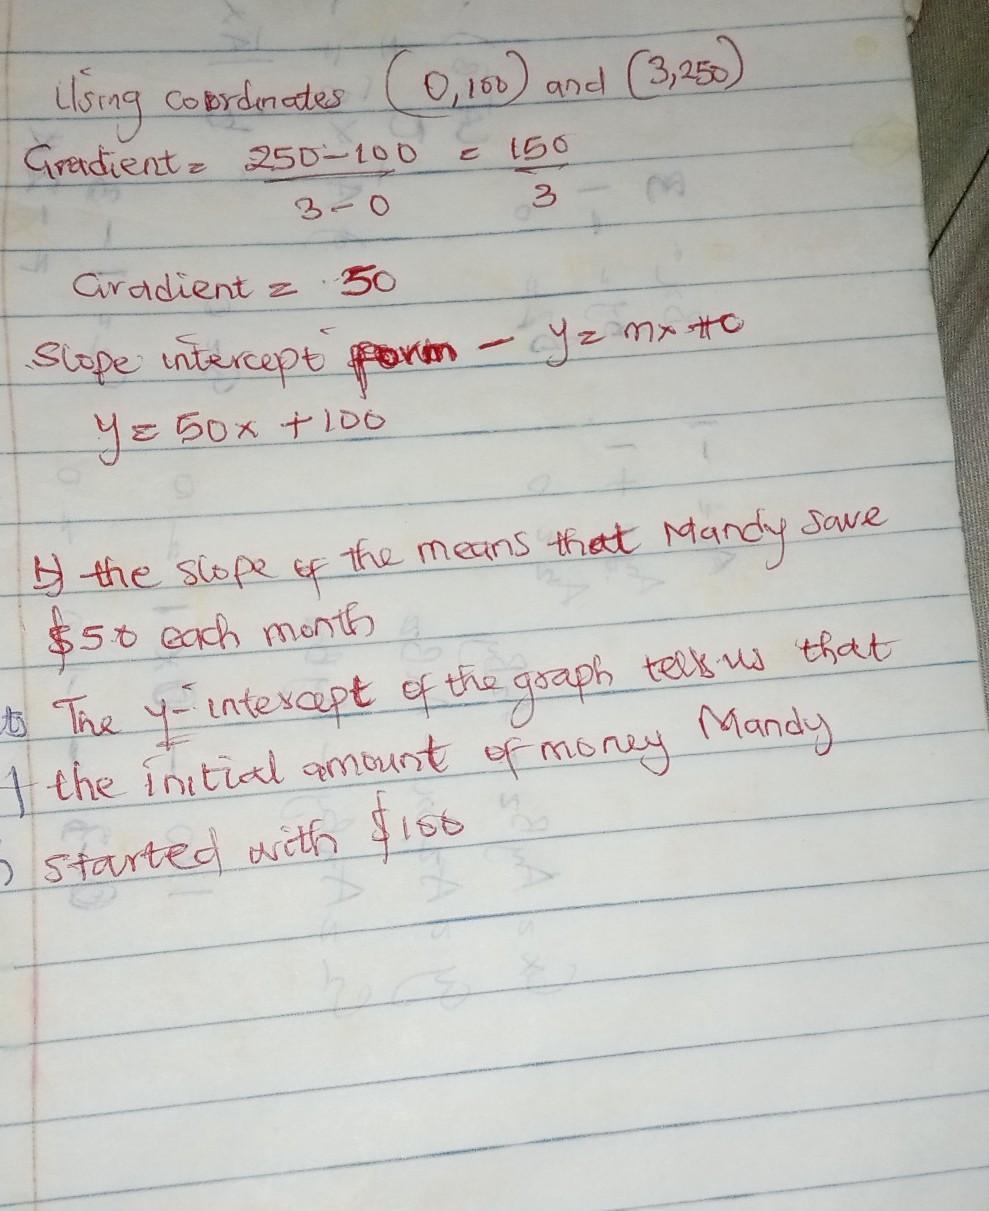 Using coordinates (0,100) and (3,250)
Gradient = 250-100 = 150
3-0 3
Gradient = 50
Slope intercept form - y = mx + c
y = 50x + 100
b) the slope of the means that Mandy save
$50 each month
The y-intercept of the graph tells us that
the initial amount of money Mandy
started with $100